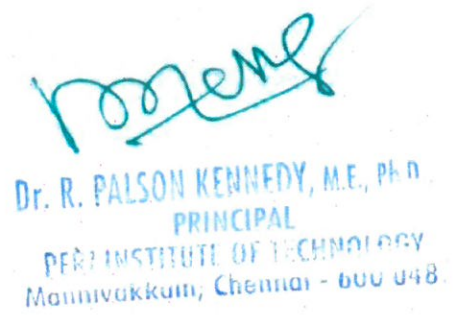 Dr. R. PALSON KENNEDY, M.E., Ph.D
PRINCIPAL
PERI INSTITUTE OF TECHNOLOGY
Mannivakkam, Chennai - 600 048.